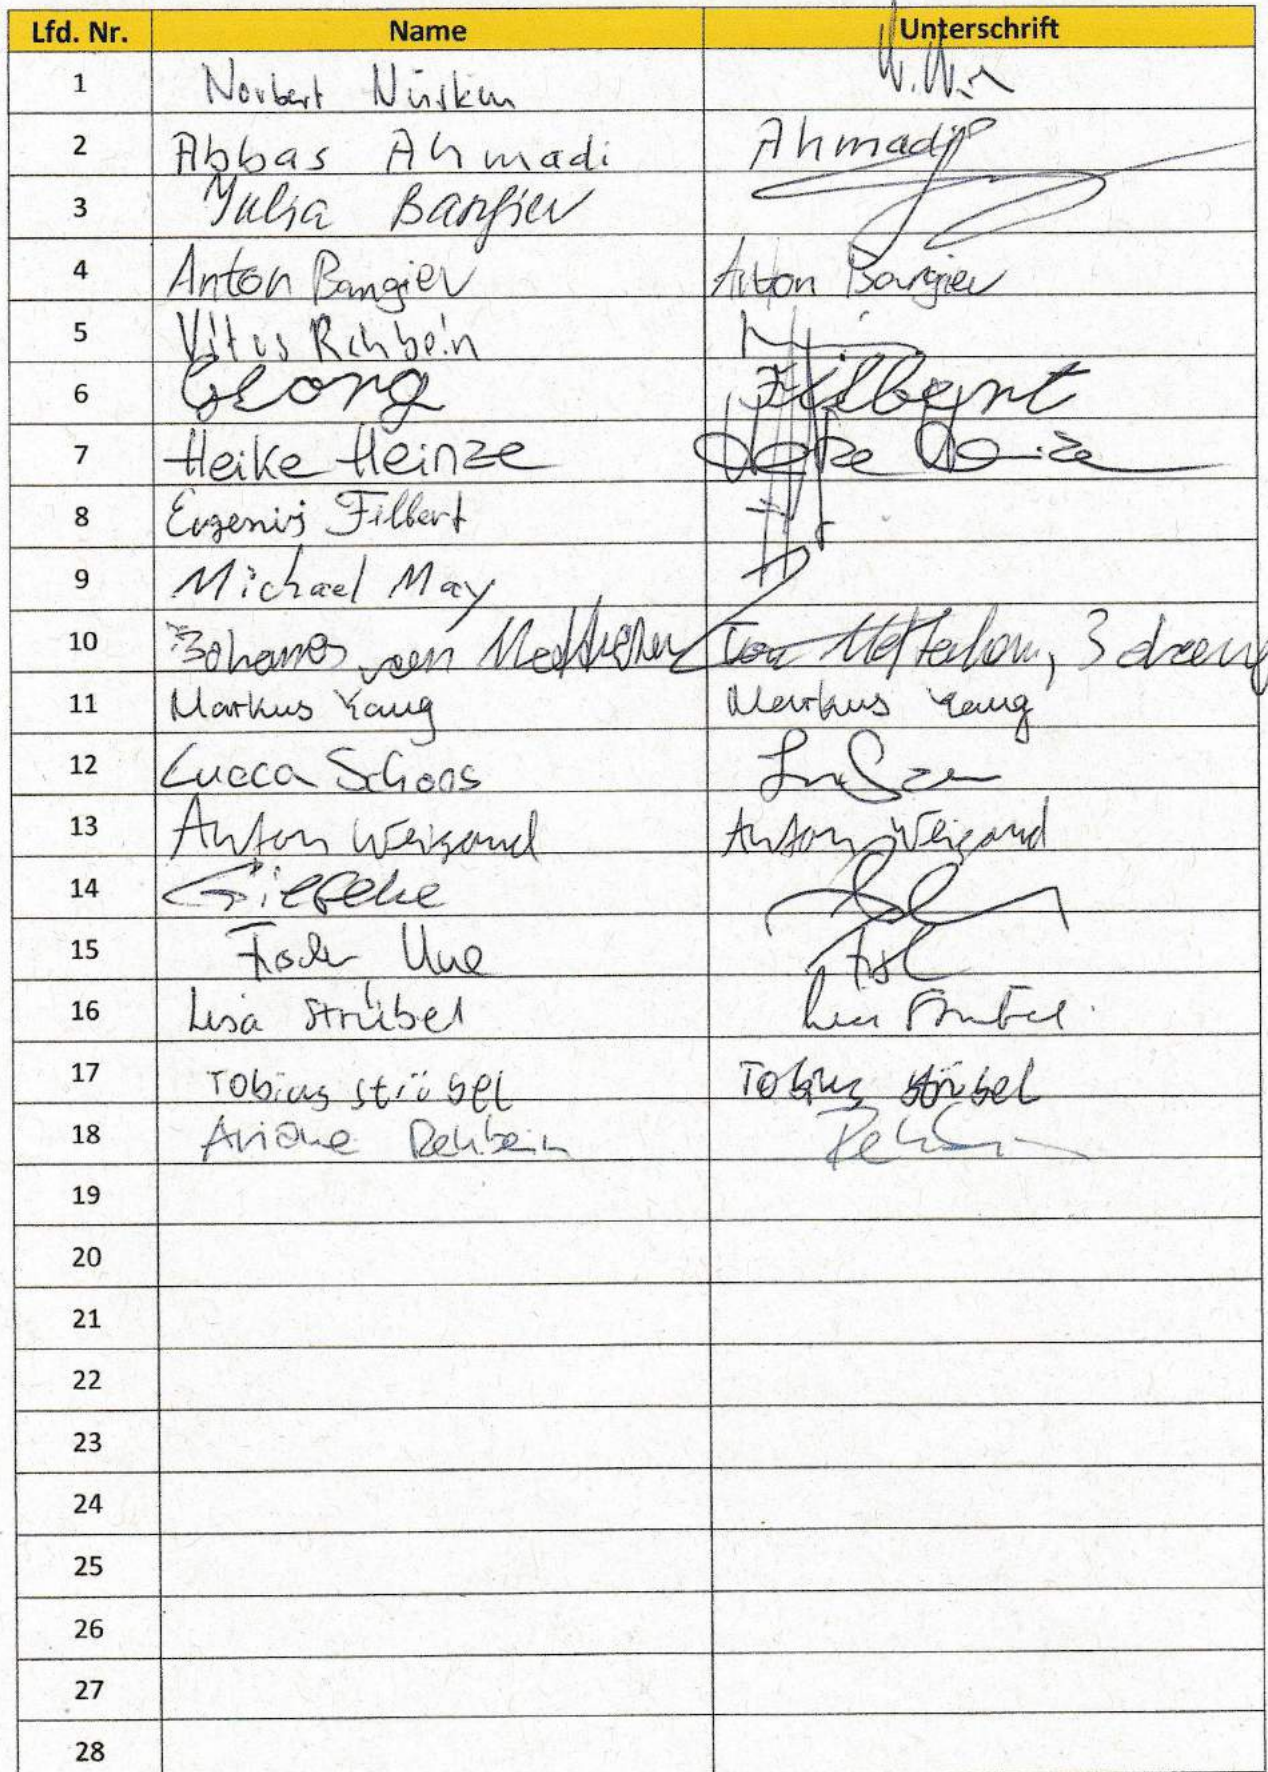 Lfd. Nr. Name Unterschrift
1 Norbert
2 Abbas Ahmadi Ahmadi
3 Yulia Bangiev
4 Anton Bangiev Anton Bangiev
5 Vitus Rehbein
6 Georg Filbert
7 Heike Heinze Heike Heinze
8 Evgenij Filbert
9 Michael May
10 Johannes von
11 Markus Kaug Markus Kaug
12 Lucca Schoos
13 Anton Weigand Anton Weigand
14
15 Uwe
16 Lisa Strübel Lisa Strübel
17 Tobias Strübel Tobias Strübel
18 Ariane Rehbein
19
20
21
22
23
24
25
26
27
28